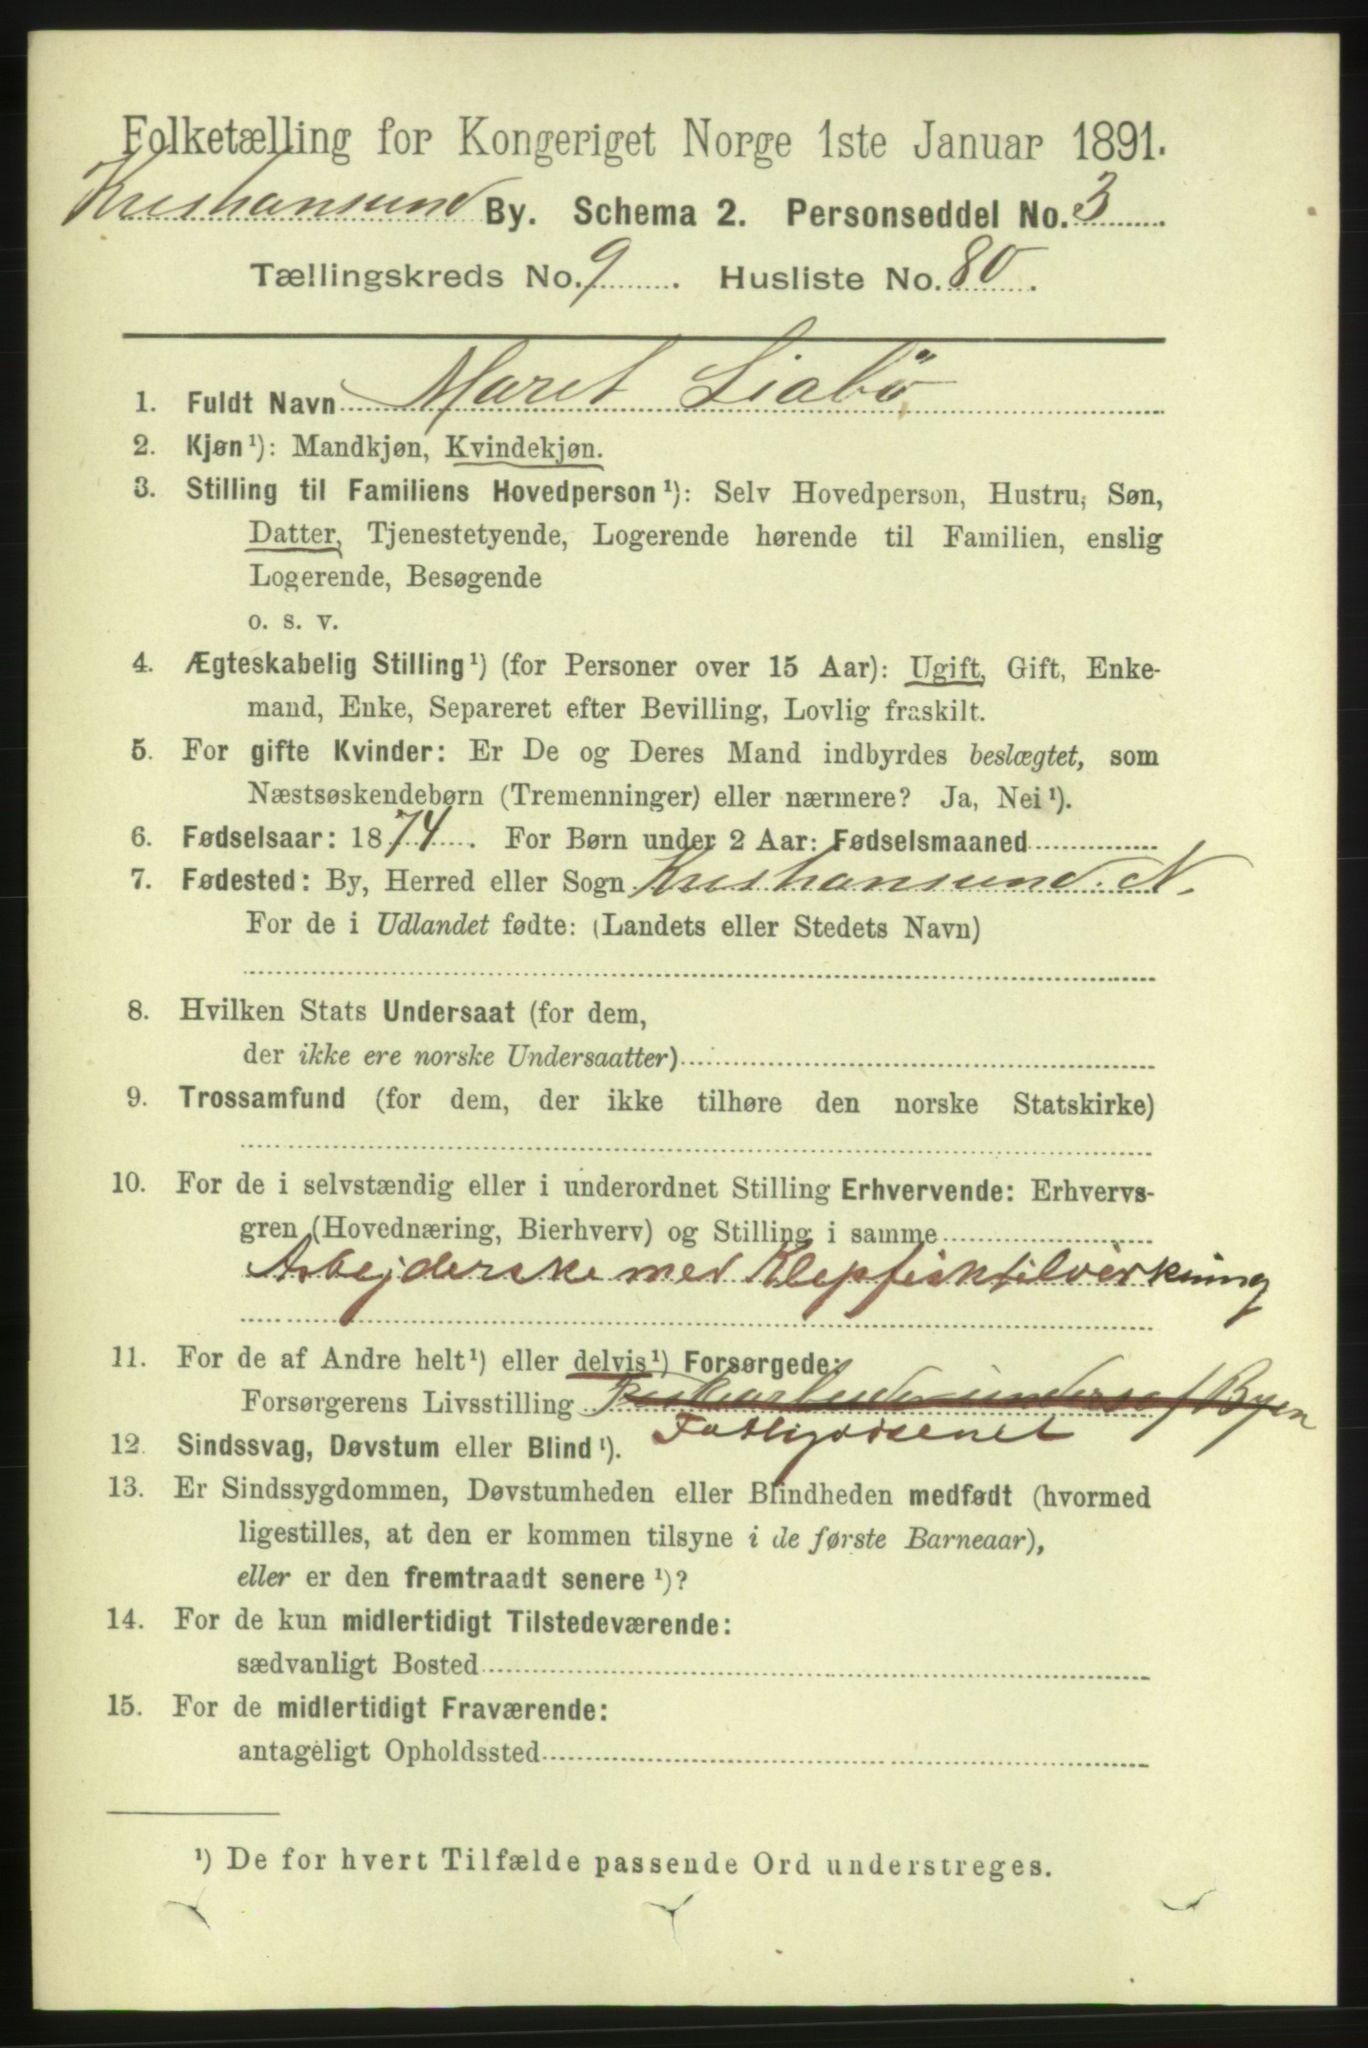 Folketælling for Kongeriget Norge 1ste Januar 1891.
Kristiansund By. Schema 2. Personseddel No. 3
Tællingskreds No. 9. Husliste No. 80.
1. Fuldt Navn Maret Liabö
2. Kjøn¹): Mandkjøn, Kvindekjøn.
3. Stilling til Familiens Hovedperson¹): Selv Hovedperson, Hustru, Søn,
Datter, Tjenestetyende, Logerende hørende til Familien, enslig
Logerende, Besøgende
o. s. v.
4. Ægteskabelig Stilling¹) (for Personer over 15 Aar): Ugift, Gift, Enke-
mand, Enke, Separeret efter Bevilling, Lovlig fraskilt.
5. For gifte Kvinder: Er De og Deres Mand indbyrdes beslægtet, som
Næstsøskendebørn (Tremenninger) eller nærmere? Ja, Nei¹).
6. Fødselsaar: 1874. For Børn under 2 Aar: Fødselsmaaned
7. Fødested: By, Herred eller Sogn Kristiansund. N.
For de i Udlandet fødte: (Landets eller Stedets Navn)
8. Hvilken Stats Undersaat (for dem,
der ikke ere norske Undersaatter)
9. Trossamfund (for dem, der ikke tilhøre den norske Statskirke)
10. For de i selvstændig eller i underordnet Stilling Erhvervende: Erhvervs-
gren (Hovednæring, Bierhverv) og Stilling i samme
Arbejderske med Klepfisktilvirkning
11. For de af Andre helt¹) eller delvis¹) Forsørgede:
Forsørgerens Livsstilling af Byen
Fattigvæsenet
12. Sindssvag, Døvstum eller Blind¹).
13. Er Sindssygdommen, Døvstumheden eller Blindheden medfødt (hvormed
ligestilles, at den er kommen tilsyne i de første Barneaar),
eller er den fremtraadt senere¹)?
14. For de kun midlertidigt Tilstedeværende:
sædvanligt Bosted
15. For de midlertidigt Fraværende:
antageligt Opholdssted
¹) De for hvert Tilfælde passende Ord understreges.